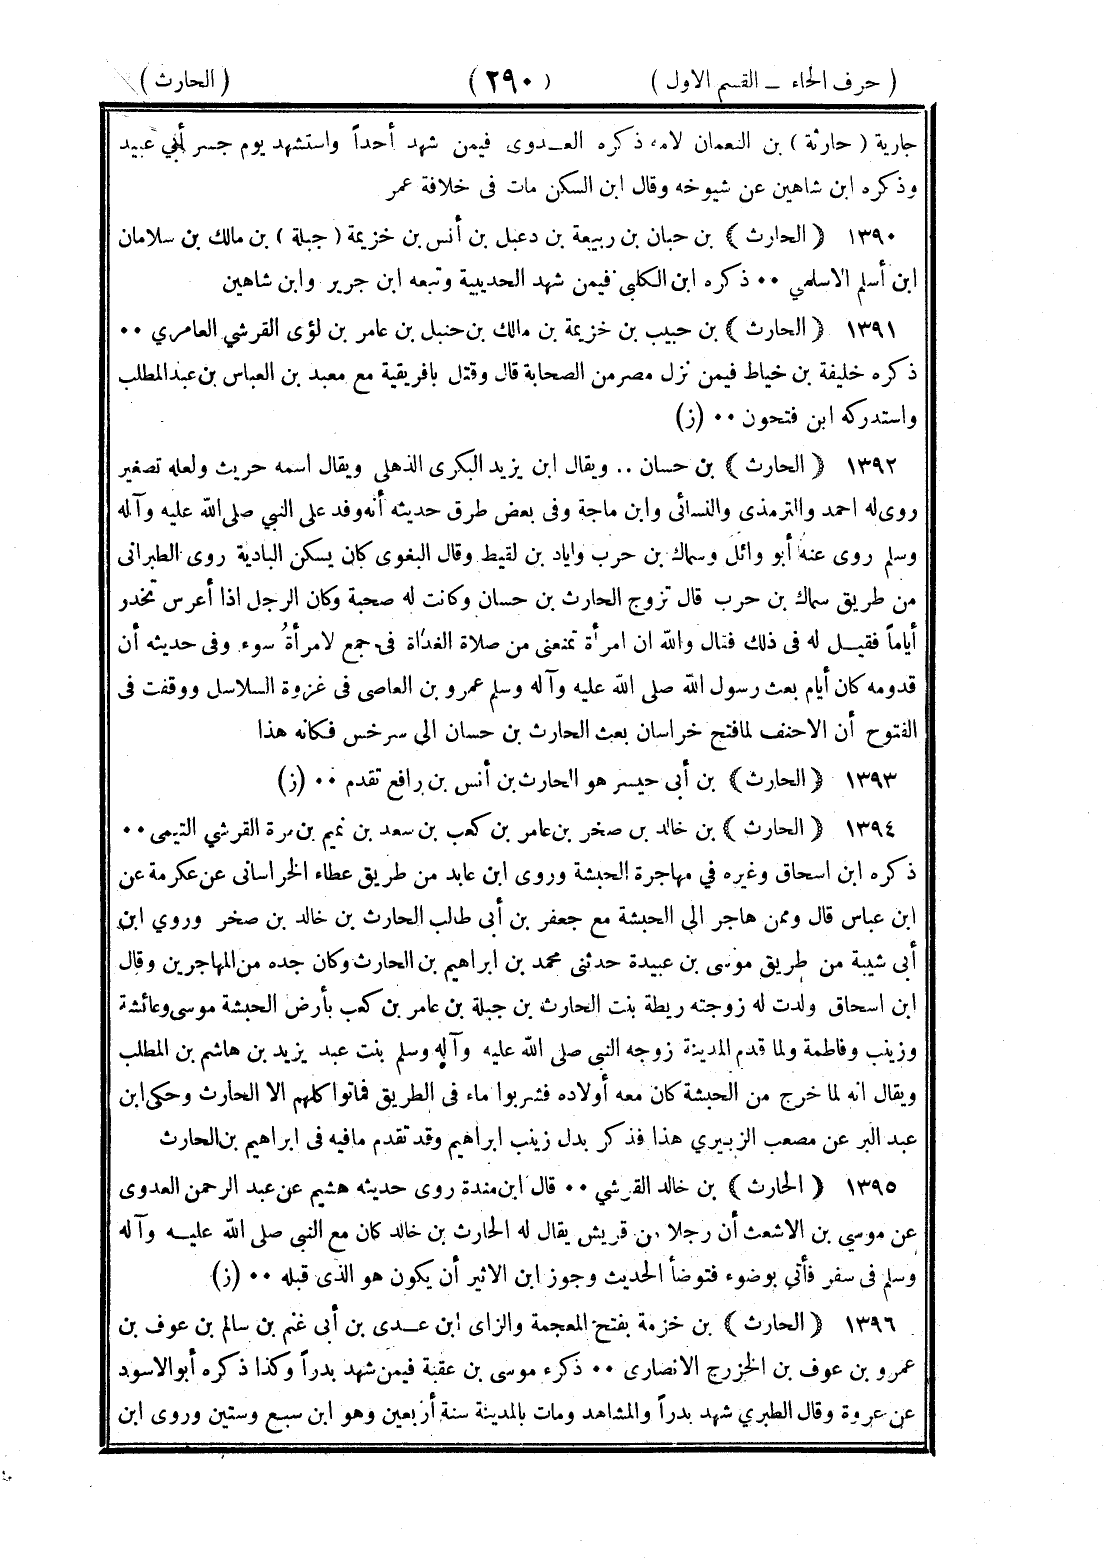 ( حرف الحاء ــ القسم الاول ) ( ٢٩٠ ) ( الحارث )
جارية ( حارثة ) بن النعمان لامه ذكره العــدوى فيمن شهد أحداً واستشهد يوم جسر أبي عبيد
وذكره ابن شاهين عن شيوخه وقال ابن السكن مات فى خلافة عمر
١٣٩٠ ﴿ الحارث ﴾ بن حبان بن ربيعة بن دعبل بن أنس بن خزيمة ( جبلة ) بن مالك بن سلامان
ابن أسلم الاسلمي ٠٠ ذكره ابن الكلبي فيمن شهد الحديبية وتبعه ابن جرير وابن شاهين
١٣٩١ ﴿ الحارث ﴾ بن حبيب بن خزيمة بن مالك بن حنبل بن عامر بن لؤى القرشي العامري ٠٠
ذكره خليفة بن خياط فيمن نزل مصر من الصحابة قال وقتل بافريقية مع معبد بن العباس بن عبد المطلب
واستدركه ابن فتحون ٠٠ (ز)
١٣٩٢ ﴿ الحارث ﴾ بن حسان .. ويقال ابن يزيد البكرى الذهلي ويقال اسمه حريث ولعله تصغير
روى له احمد والترمذى والنسائى وابن ماجة وفى بعض طرق حديثه أنه وفد على النبي صلى الله عليه وآله
وسلم روى عنه أبو وائل وسماك بن حرب واياد بن لقيط وقال البغوى كان يسكن البادية روى الطبرانى
من طريق سماك بن حرب قال تزوج الحارث بن حسان وكانت له صحبة وكان الرجل اذا أعرس تخدر
أياماً فقيــل له فى ذلك فقال والله ان امرأة تمنعنى من صلاة الغداة فى جمع لامرأة سوء وفى حديثه أن
قدومه كان أيام بعث رسول الله صلى الله عليه وآله وسلم عمرو بن العاصى فى غزوة السلاسل ووقفت فى
الفتوح أن الاحنف لما فتح خراسان بعث الحارث بن حسان الى سرخس فكانه هذا
١٣٩٣ ﴿ الحارث ﴾ بن أبى حيسر هو الحارث بن أنس بن رافع تقدم ٠٠ (ز)
١٣٩٤ ﴿ الحارث ﴾ بن خالد بن صخر بن عامر بن كعب بن سعد بن تميم بن مرة القرشي التيمى ٠٠
ذكره ابن اسحاق وغيره في مهاجرة الحبشة وروى ابن عابد من طريق عطاء الخراسانى عن عكرمة عن
ابن عباس قال وممن هاجر الى الحبشة مع جعفر بن أبى طالب الحارث بن خالد بن صخر وروي ابن
أبى شيبة من طريق موسى بن عبيدة حدثنى محمد بن ابراهيم بن الحارث وكان جده من المهاجرين وقال
ابن اسحاق ولدت له زوجته ريطة بنت الحارث بن جبلة بن عامر بن كعب بأرض الحبشة موسى وعائشة
وزينب وفاطمة ولما قدم المدينة زوجه النبى صلى الله عليه وآله وسلم بنت عبد يزيد بن هاشم بن المطلب
ويقال انه لما خرج من الحبشة كان معه أولاده فشربوا ماء فى الطريق فماتوا كلهم الا الحارث وحكى ابن
عبد البر عن مصعب الزبيري هذا فذكر بدل زينب ابراهيم وقد تقدم مافيه فى ابراهيم بن الحارث
١٣٩٥ ﴿ الحارث ﴾ بن خالد القرشي ٠٠ قال ابن مندة روى حديثه هشيم عن عبد الرحمن العدوى
عن موسي بن الاشعث أن رجلا من قريش يقال له الحارث بن خالد كان مع النبى صلى الله عليــه وآله
وسلم فى سفر فأتي بوضوء فتوضأ الحديث وجوز ابن الاثير أن يكون هو الذى قبله ٠٠ (ز)
١٣٩٦ ﴿ الحارث ﴾ بن خزمة بفتح المعجمة والزاى ابن عــدى بن أبى غنم بن سالم بن عوف بن
عمرو بن عوف بن الخزرج الانصارى ٠٠ ذكره موسى بن عقبة فيمن شهد بدراً وكذا ذكره أبو الاسود
عن عروة وقال الطبري شهد بدراً والمشاهد ومات بالمدينة سنة أربعين وهو ابن سبع وستين وروى ابن